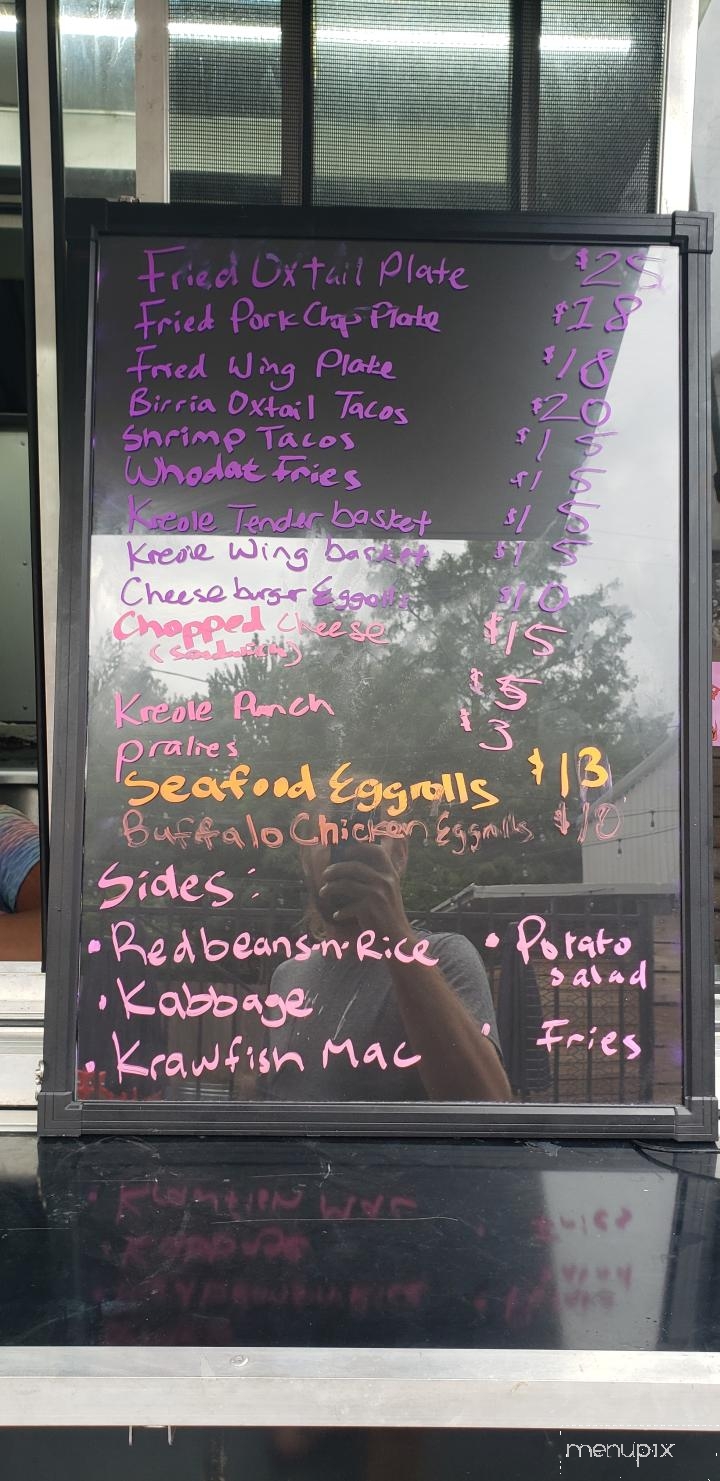 Fried Oxtail Plate $25
Fried Pork Chop Plate $18
Fried Wing Plate $18
Birria Oxtail Tacos $20
Shrimp Tacos $15
Whodat Fries $15
Kreole Tender basket $15
Kreole Wing basket $15
Cheeseburgr Eggrolls $10
Chopped Cheese $15
(Sandwich)
Kreole Punch $5
pralies $3
Seafood Eggrolls $13
Buffalo Chicken Eggrolls $10
Sides:
• Redbeans-n-Rice • Potato salad
• Kabbage
• Krawfish Mac • Fries
menupix